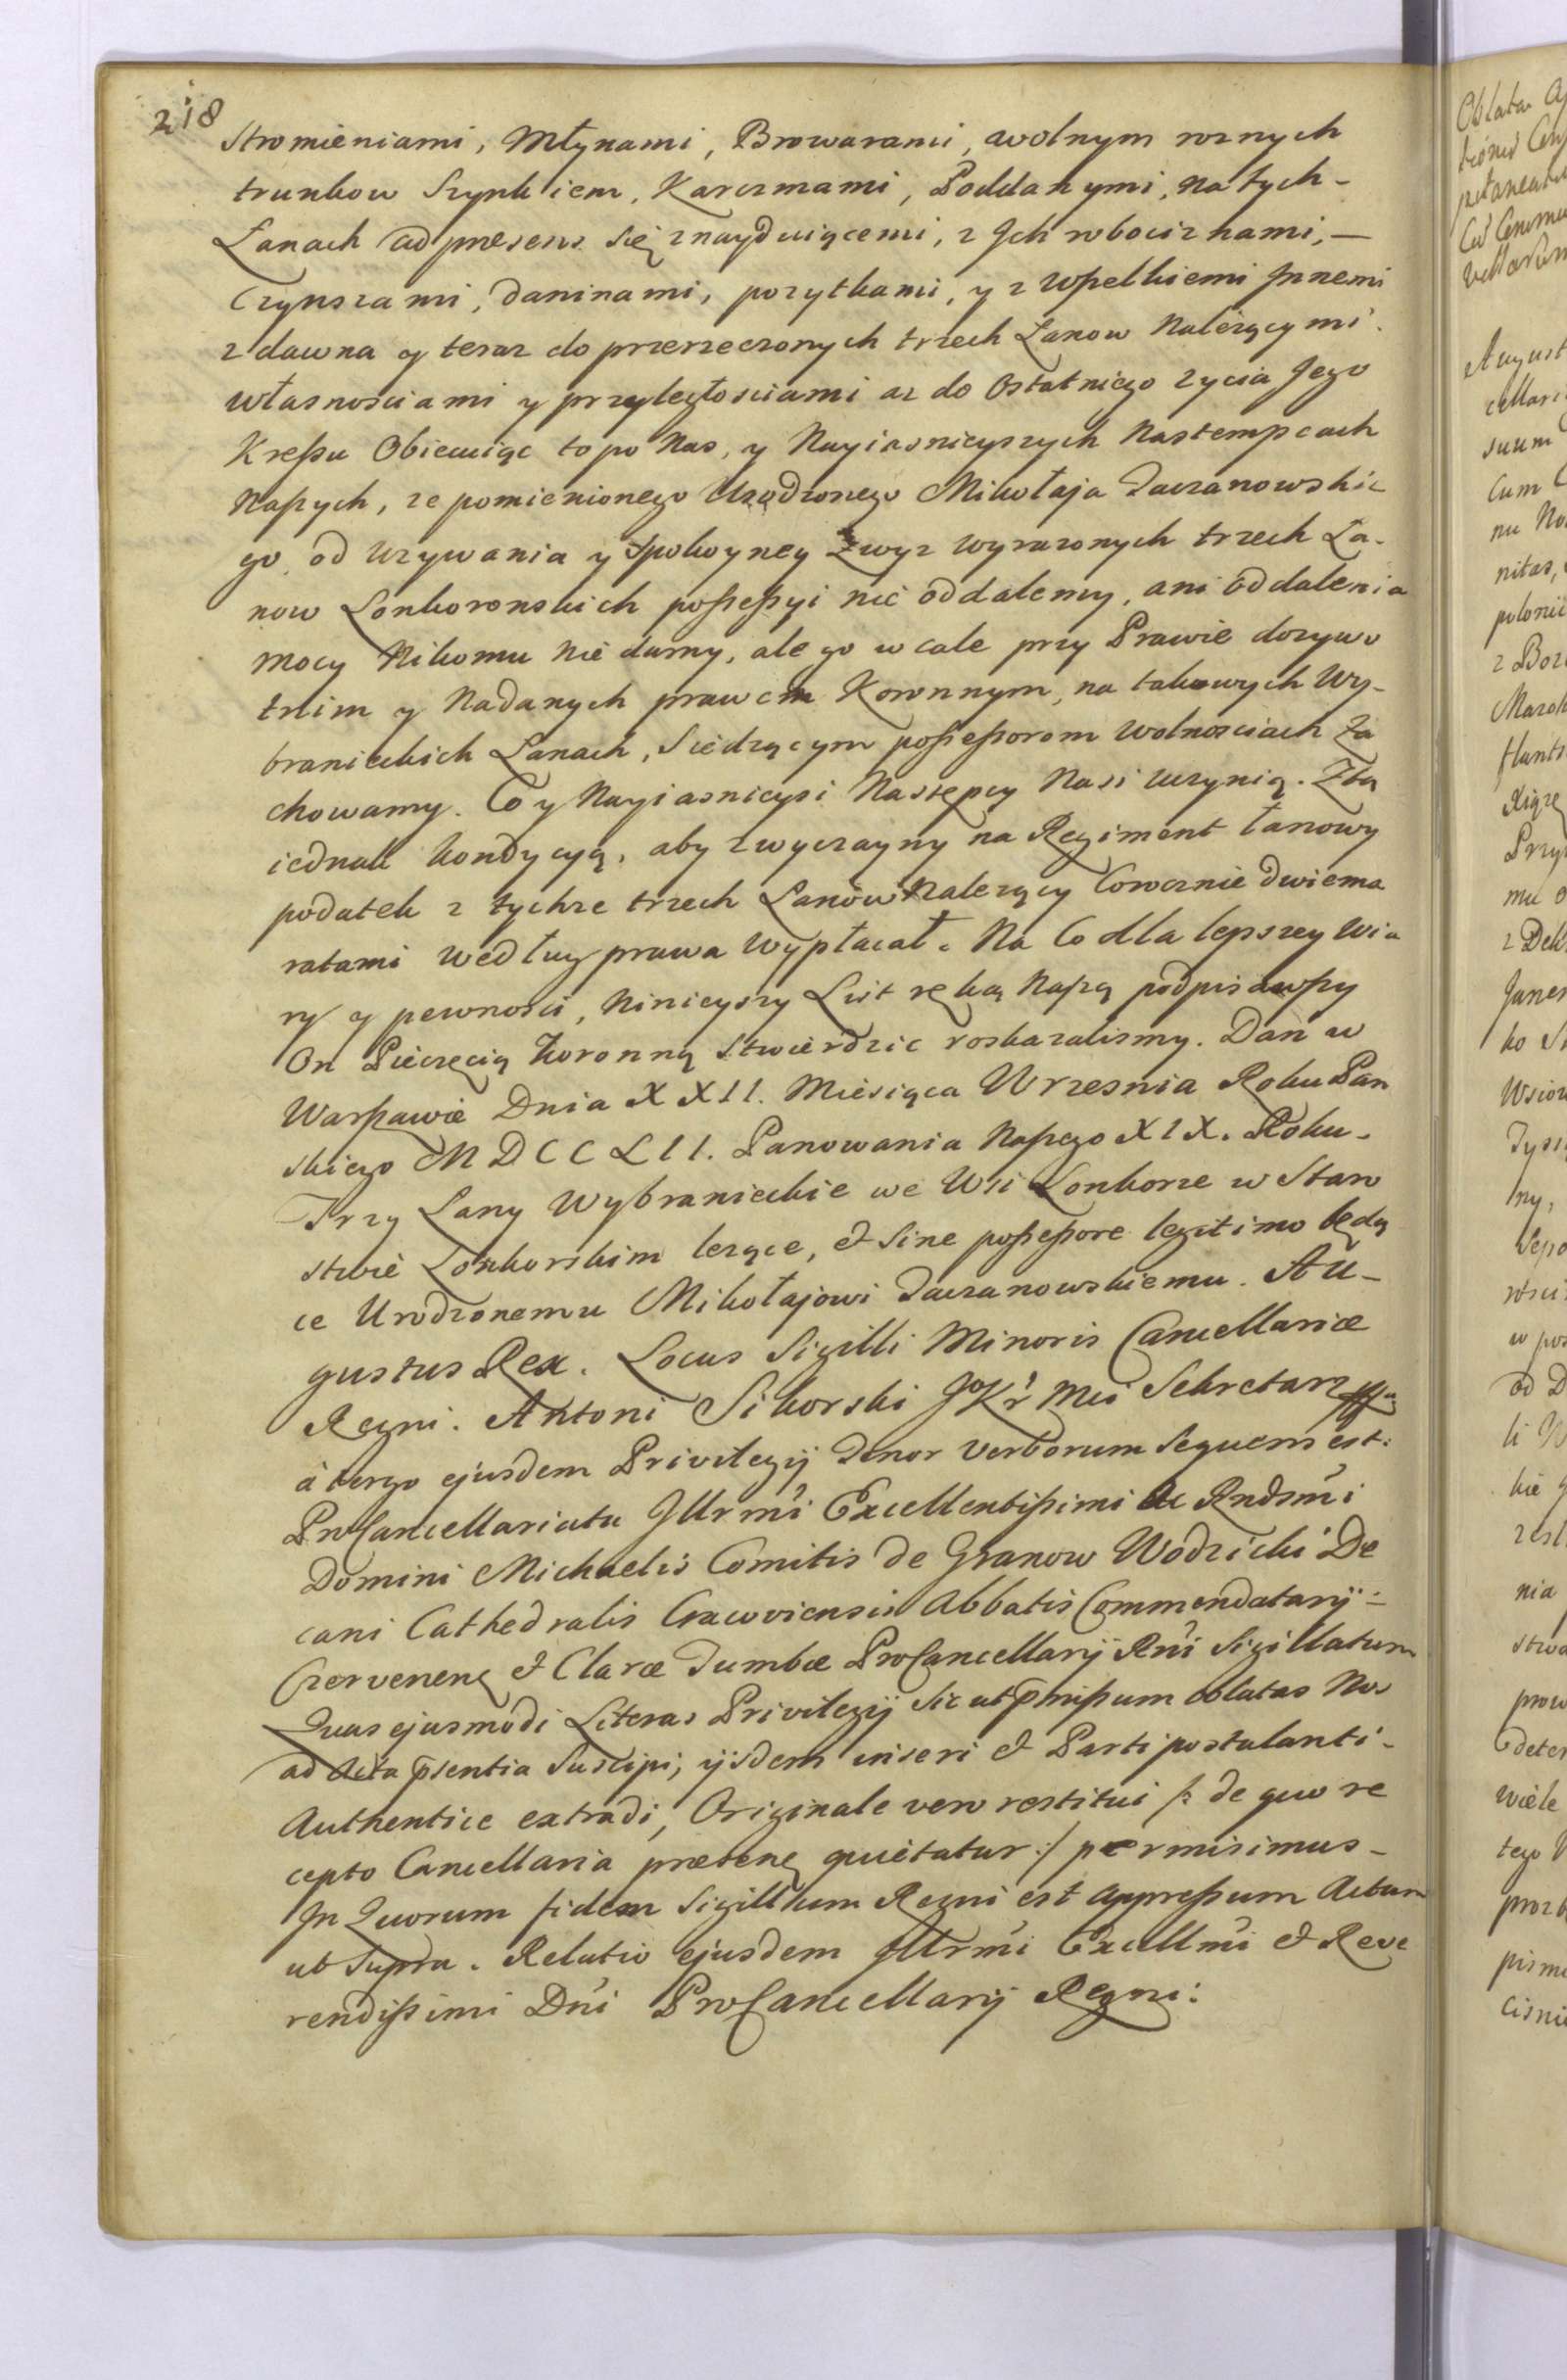 218
Stromieniami, Młynami, Browarami, wolnym roznych
trunkow Szynkiem, Karczmami, Poddanymi, na tych-
Łanach ad præsens się znayduiącemi, z Jch robociznami, —
Czynszami, Daninami, pozytkami, y z wszelkiemi Jnnemi
zdawna y teraz do przerzeczonych trzech Łanow Należącymi.
własnosciami y przyległosciami az do Ostatniego zycia Jego
Kresu Obiecuiąc to po Nas, y Nayiasnieyszych Nastempcach
Naszych, ze pomienionego Urodzonego Mikołaja Jaczanowskie
go od Uzywania y Spokoyney Zwyz wyrazonych trzech Ła-
now Lonkoronskich possessyi nie oddalemy, ani oddalenia
mocy Nikomu nie damy, ale go w cale przy Prawie dozywo
tnim y Nadanych prawem Koronnym, na takowych Wy-
branieckich Łanach, Siedzącym possessorom wolnosciach Za
chowamy. Co y Nayiasnieysi Następcy Nasi uczynią. Ztą
iednak kondycyą, aby zwyczayny na Regiment łanowy
podatek z tychze trzech Łanów Nalezący Corocznie dwiema
ratami według prawa wypłacał. Na Co dla lepszey wia
ry y pewnosci, Ninieyszy List ręką Naszą podpisawszy
On Pieczęcią Koronną Stwierdzic roskazalismy. Dan w
Warszawie Dnia XXII. Miesiąca Wrzesnia Roku Pan
skiego MDCCLII. Panowania Naszego XIX. Roku.
Trzy Łany Wybranieckie we Wsi Lonkorze w Staro
stwie Lonkorskim lezące, et Sine possessore legitimo będą
ce Urodzonemu Mikołajowi Jaczanowskiemu. Au-
gustus Rex. Locus Sigilli Minoris Cancellariæ
Regni. Antoni Sikorski JoKr Mci Sekretarz
à tergo ejusdem Privilegij Tenor verborum Sequens est:
ProCancellariatu Jllrmi Excellentissimi Ac Rndsmi
Domini Michaelis Comitis de Granow Wodzicki De
cani Cathedralis Cracoviensis Abbatis Commendatarij
Czervenens et Claræ Tumbæ ProCancellarij Rni Sigillatum
Quas ejusmodi Literas Privilegij Sic ut pmissum oblatas Nos
ad Acta psentia Suscipi, ijsdem inseri et Parti postulanti-
Authentice extradi, Originale vero restitui /: de quo re
cepto Cancellaria præsens quietatur :/ permisimus-
Jn Quorum fidem Sigillum Regni est appressum Actum
ut Supra. Relatio ejusdem Jllrmi Excellmi et Reve
rendissimi Dni ProCancellarij Regni: